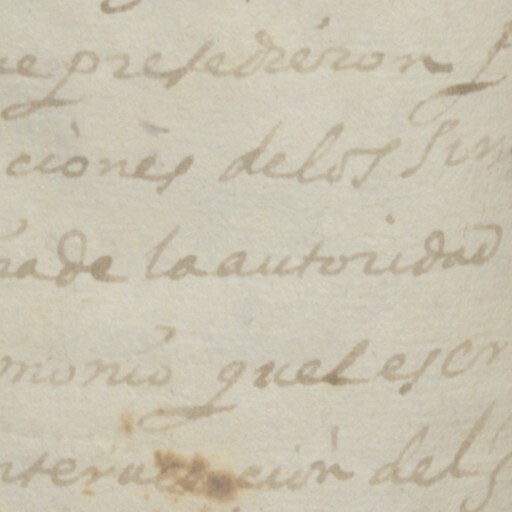 ue presedieron
ciones delos Sin
ra de la autoridad
monio quel escr
nter cion del